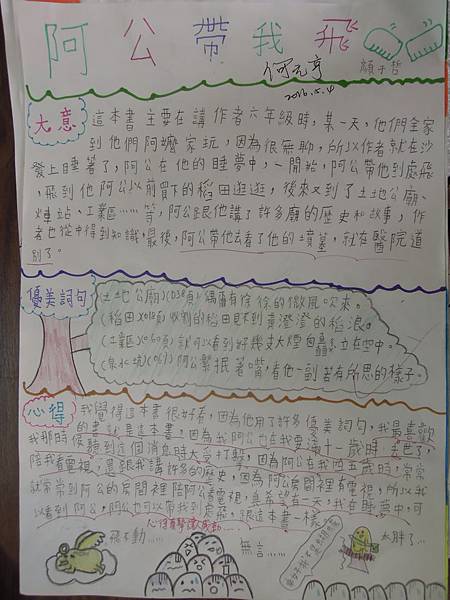 阿公帶我飛
何元亨
2016.5.4
顏子哲
大意
這本書主要在講作者六年級時,某一天,他們全家
到他們阿嬤家玩,因為很無聊,所以作者就在沙
發上睡著了,阿公在他的睡夢中,一開始,阿公帶他到處飛
,飛到他阿公以前買下的稻田逛逛,後來又到了土地公廟、
火車站、工業區……等,阿公跟他講了許多廟的歷史和故事,作
者也從中得到知識,最後,阿公帶他去看了他的墳墓,就在醫院道
別了。
優美詞句
(土地公廟)(038頁)偶爾有徐徐的微風吹來。
(稻田)(018頁)收割的稻田見不到黃澄澄的稻浪。
(工業區)(060頁)就可以看到好幾支大煙囪矗立在空中。
(泉水坑)(069)阿公緊抿著嘴,看他一副若有所思的樣子。
心得
我覺得這本書很好看,因為他用了許多優美詞句,我最喜歡
的書就是這本書,因為我阿公也在我要滿十一歲時去世了,
我那時候聽到這個消息時大受打擊,因為阿公在我四五歲時,常常
陪我看電視,還跟我講許多的歷史,因為阿公房間裡有電視,所以我
就常常到阿公的房間裡陪阿公看電視,真希望有一天,我在睡夢中,可
以看到阿公,阿公也可以帶我到處飛,跟這本書一樣
飛不動……
無言……
太胖了…